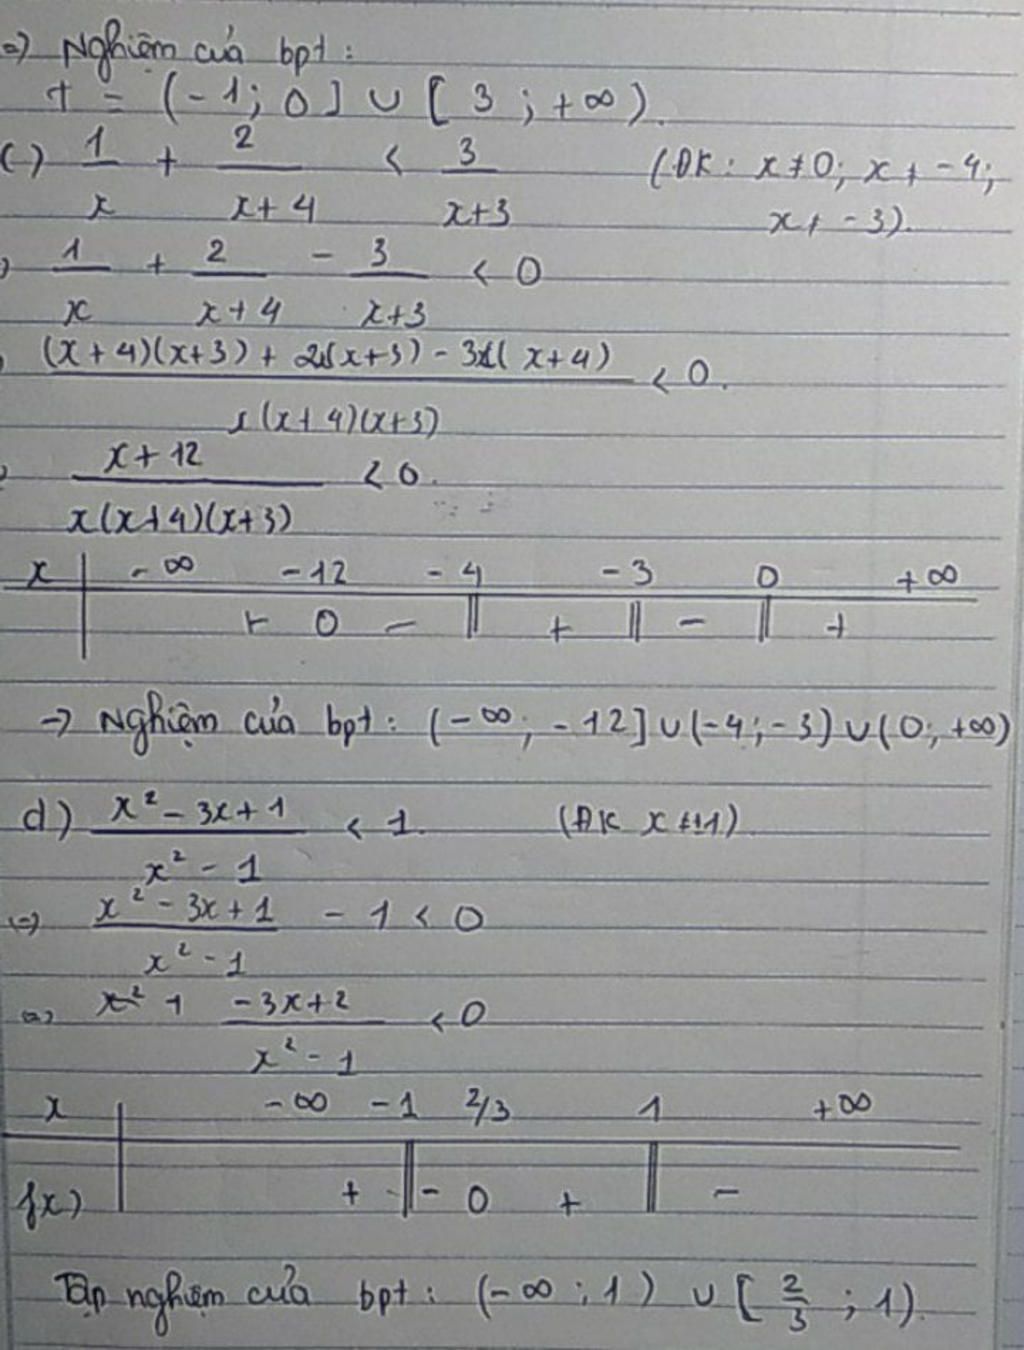 =) Nghiệm của bpt:
T = (-1; 0] ∪ [3; +∞).
c) 1/x + 2/(x+4) < 3/(x+3) (ĐK: x ≠ 0; x ≠ -4;
x ≠ -3).
1/x + 2/(x+4) - 3/(x+3) < 0
((x+4)(x+3) + 2x(x+3) - 3x(x+4))/(x(x+4)(x+3)) < 0.
(x+12)/(x(x+4)(x+3)) < 0.
x -∞ -12 -4 -3 0 +∞
+ 0 - || + || - || +
-> Nghiệm của bpt: (-∞; -12] ∪ (-4; -3) ∪ (0; +∞)
d) (x² - 3x + 1)/(x² - 1) < 1. (ĐK x ≠ ±1).
(=) (x² - 3x + 1)/(x² - 1) - 1 < 0
(=) (-3x+2)/(x² - 1) < 0
x -∞ -1 2/3 1 +∞
f(x) + || - 0 + || -
Tập nghiệm của bpt: (-∞; 1) ∪ [2/3; 1).